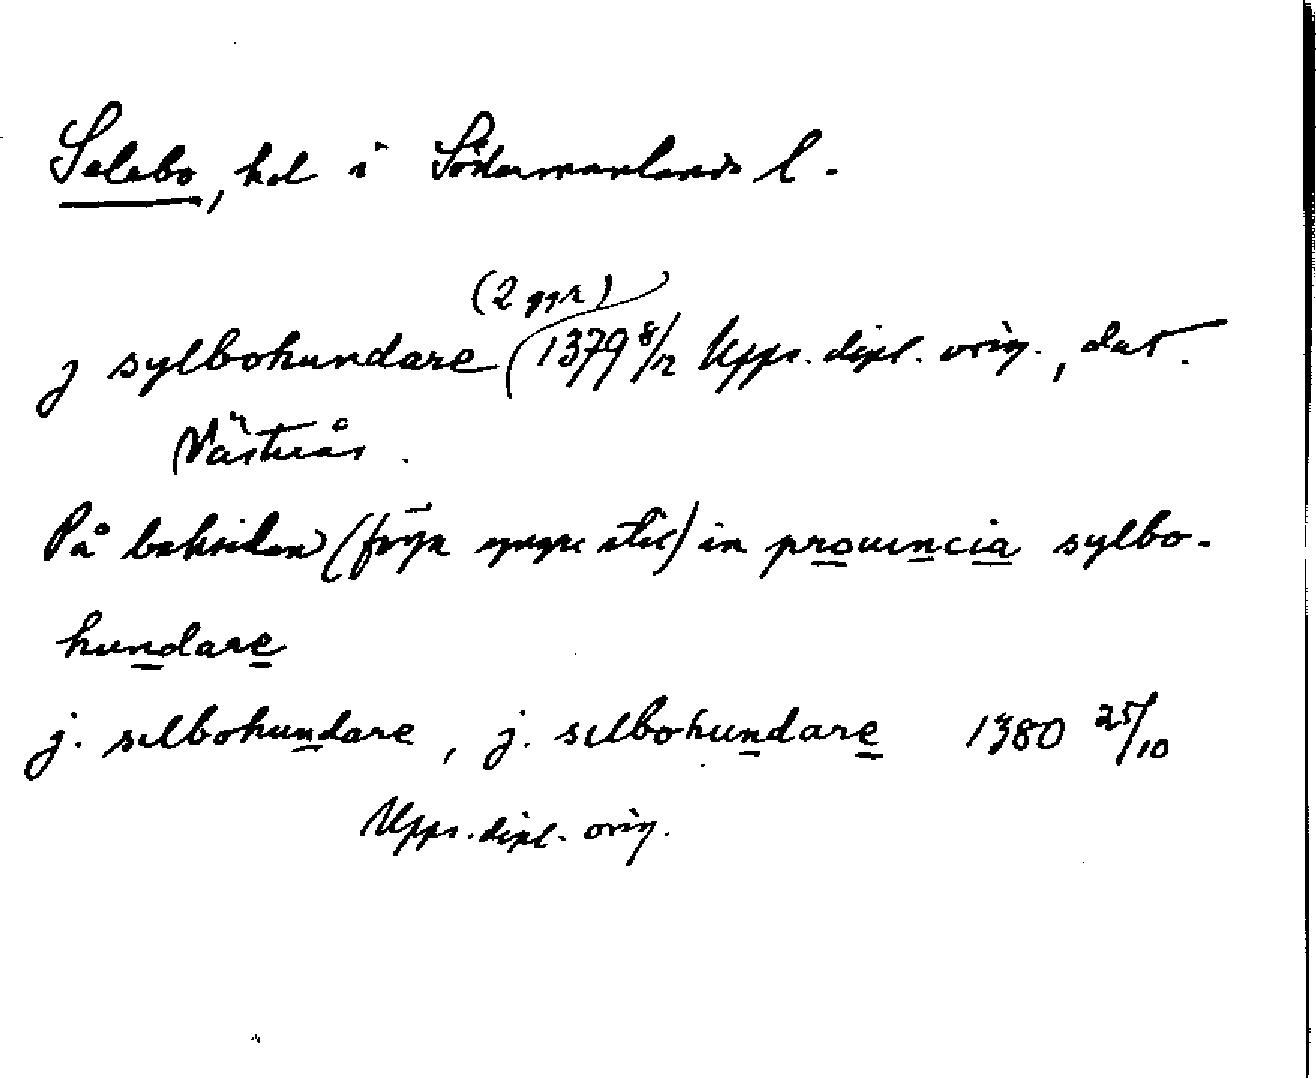 Selebo, hd i Södermanlands l.
(2 ggr)
j sylbohundare 1379 8/12 Upps. dipl. orig., dat.
Västerås.
På baksidan (något yngre stil) in prouincia sylbo-
hundare
j. selbohundare, j. selbohundare 1380 25/10
Upps. dipl. orig.